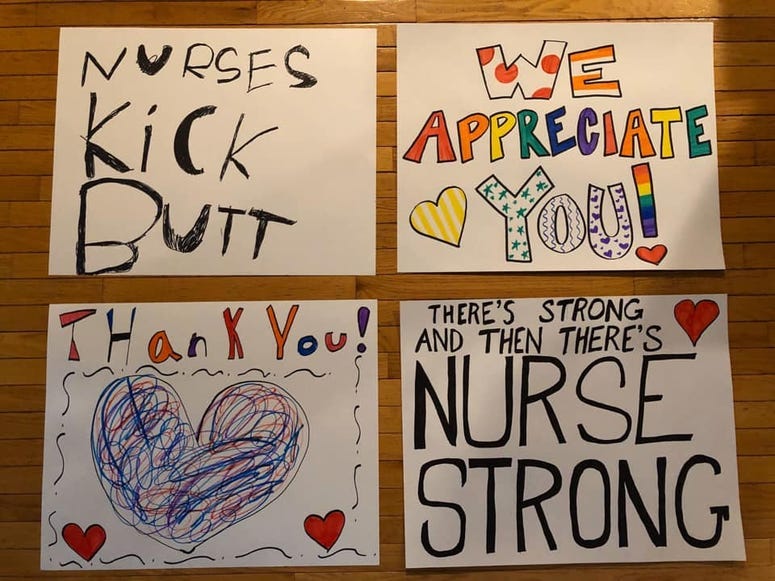 NURSES
KiCK
BUTT
WE
APPRECIATE
YOU!
THanK You!
THERE'S STRONG
AND THEN THERE'S
NURSE
STRONG